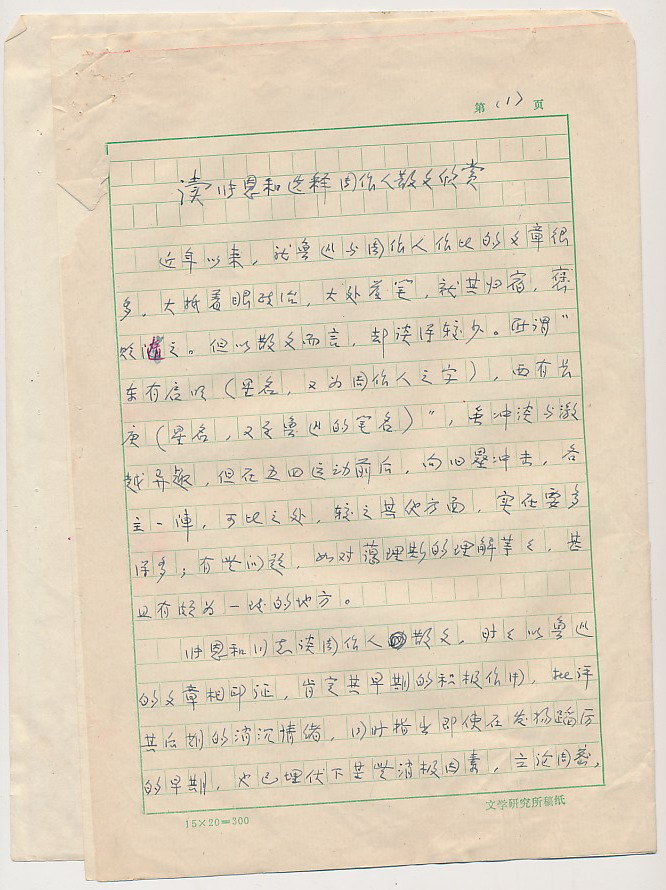 第(1)页
读许恩和选释周作人散文欣赏
近年以来,就鲁迅与周作人作比的文章很
多,大抵着眼政治,大处落笔,就其归宿,褒
贬随之。但以散文而言,却谈得较少。所谓"
东有启明(星名,又为周作人之字),西有长
庚(星名,又是鲁迅的笔名)",虽冲淡与激
越异趣,但在五四运动前后,向旧垒冲击,各
主一陣,可比之处,较之其他方面,实在要多
得多;有些问题,如对蔼理斯的理解等々,甚
且有颇为一致的地方。
许恩和同志谈周作人散文,时々以鲁迅
的文章相印证,肯定其早期的积极作用,批评
其后期的消沉情绪,同时指出即使在发扬蹈厉
的早期,也已埋伏下某些消极因素,立论周密,
15×20=300
文学研究所稿纸